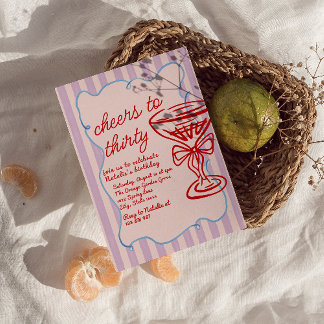 cheers to
thirty
join us to celebrate
Natalie's birthday
Saturday, August 10 at 4pm
The Orange Garden Grove
City, State
Rsvp to Natalie at